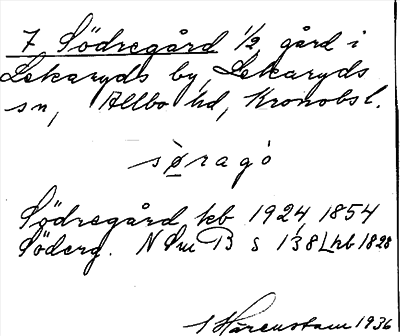 7 Södregård 1/2 gård i
Lekaryds by, Lekaryds
sn, Allbo hd, Kronobs l.
sø̀ragó
Södregård kb 1924, 1854
Söderg. N Sm B s 138 hb 1828
Harenstam 1936